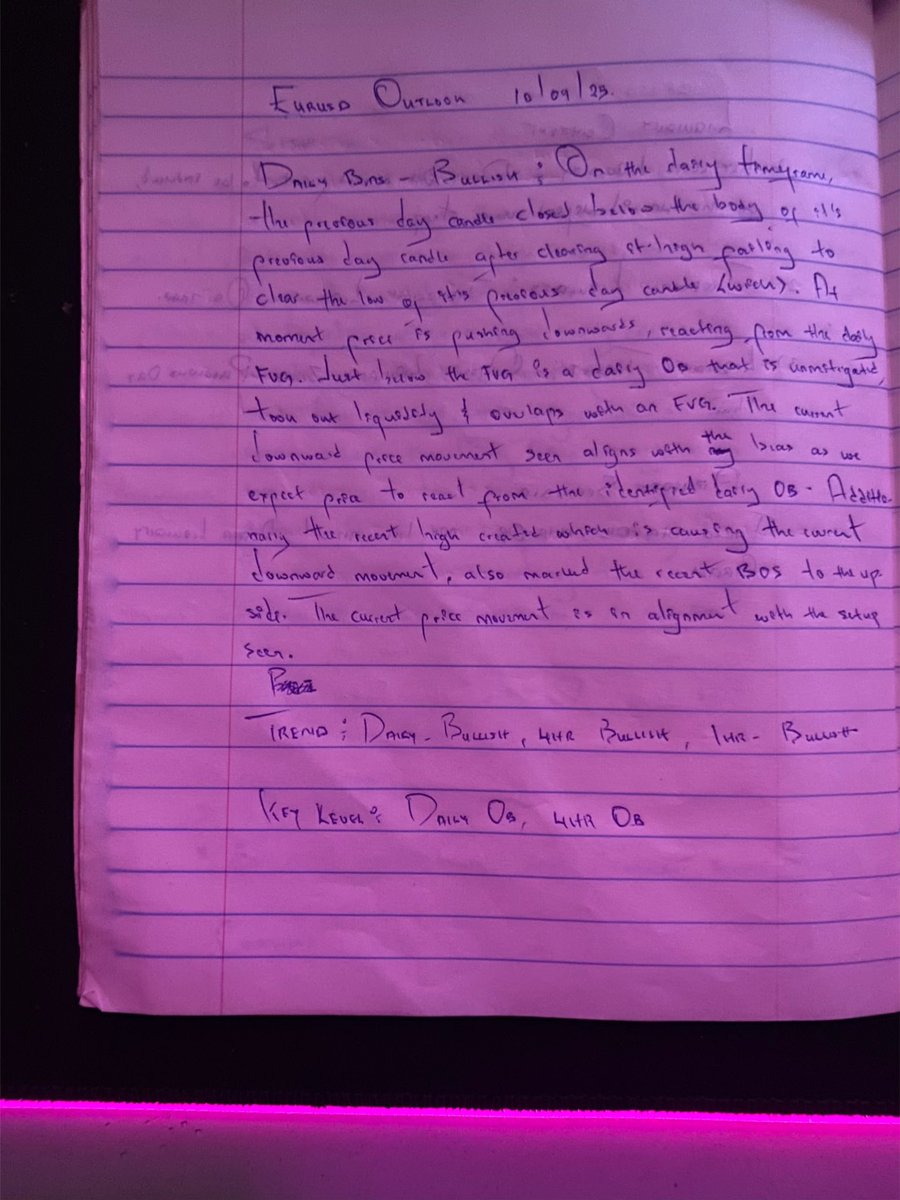 EURUSD OUTLOOK 10/09/25.
DAILY BIAS - BULLISH : On the daily timeframe,
the previous day candle closed below the body of it's
previous day candle after clearing it high failing to
clear the low of it's previous day candle (wick). At
moment price is pushing downwards, reacting from the daily
FVG. Just below the FVG is a daily OB that is unmitigated,
took out liquidity & ovelaps with an FVG. The current
downward price movement seen aligns with the bias as we
expect price to react from the identified daily OB. Additio-
nally the recent high created which is causing the current
downward movement, also marked the recent BOS to the up-
side. The current price movement is in alignment with the setup
seen.
TREND : DAILY - BULLISH, 4HR BULLISH, 1HR - BULLISH
KEY LEVEL : DAILY OB, 4HR OB